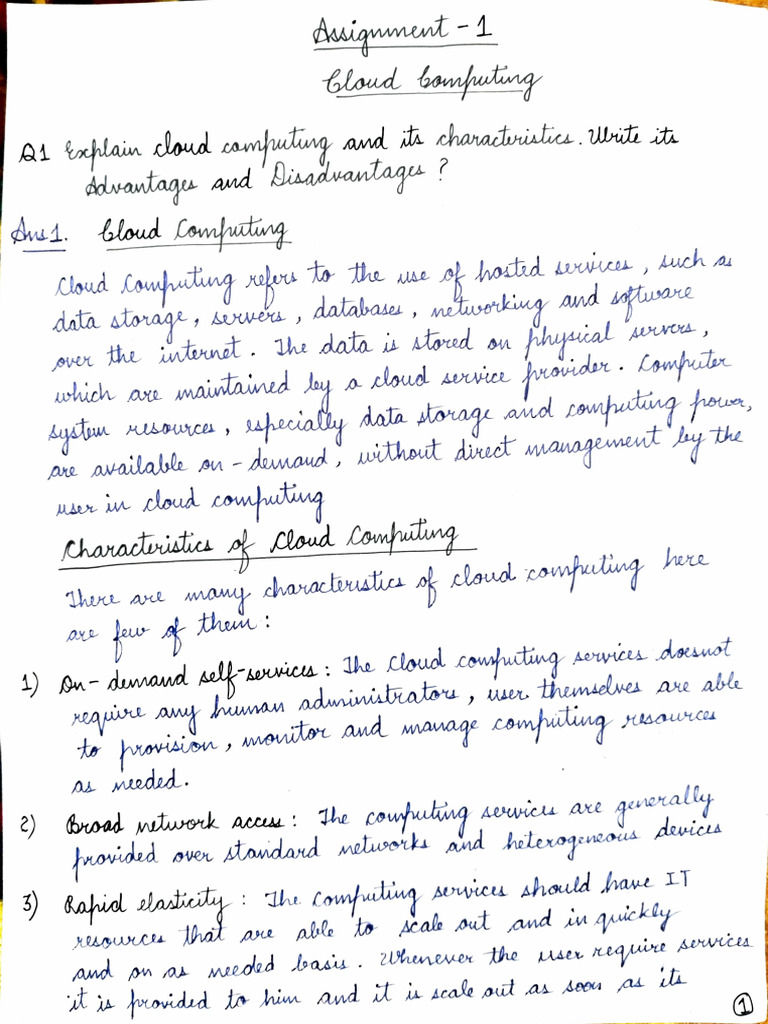 Assignment - 1
Cloud Computing
Q1 Explain cloud computing and its characteristics. Write its
Advantages and Disadvantages ?
Ans 1. Cloud Computing
Cloud Computing refers to the use of hosted services, such as
data storage, servers, databases, networking and software
over the internet. The data is stored on physical servers,
which are maintained by a cloud service provider. Computer
system resources, especially data storage and computing power,
are available on-demand, without direct management by the
user in cloud computing
Characteristics of Cloud Computing
There are many characteristics of cloud computing here
are few of them :
1) On-demand self-services : The Cloud computing services doesnot
require any human administrators, user themselves are able
to provision, monitor and manage computing resources
as needed.
2) Broad network access : The computing services are generally
provided over standard networks and heterogeneous devices
3) Rapid elasticity : The Computing services should have IT
resources that are able to scale out and in quickly
and on as needed basis. Whenever the user require services
it is provided to him and it is scale out as soon as its
1